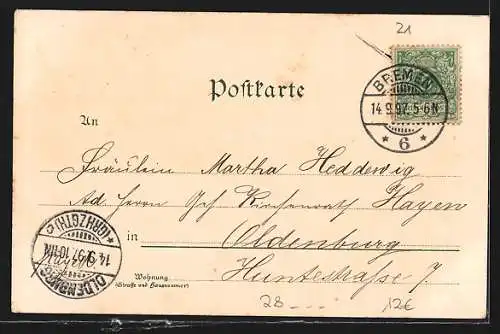 21
Postkarte
BREMEN
14.9.97.5-6N
* 6 *
An
Fräulein Martha Heddewig
Ad. Herrn Geh Kirchenrath Hayen
in Oldenburg
Wohnung Huntestraße 7.
(Straße und Hausnummer)
OLDENBURG
14.9.97.10-11N
*(GRHZGTH)*
28
12€